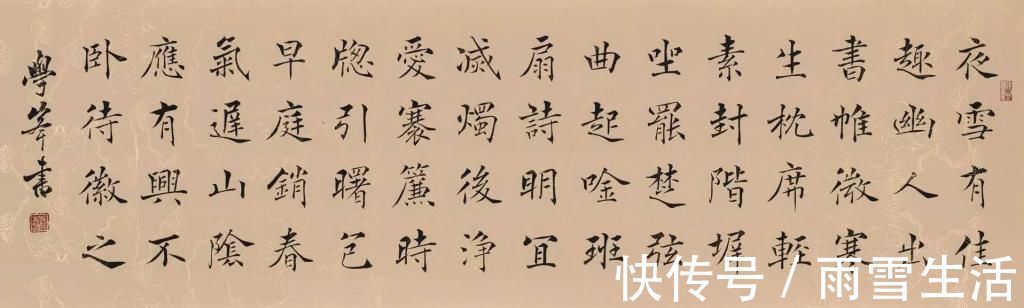 夜雪有佳
趣幽人出
書帷微寒
生枕席輕
素封階墀
坐罷楚弦
曲起唫班
扇詩明宜
滅燭後浄
愛褰簾時
牎引曙色
早庭銷春
氣遲山陰
應有興不
卧待徽之
學書
快传号/雨雪生活